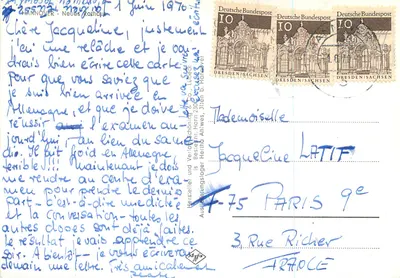 1 Juin 1970
Chère Jacqueline, justement
j'ai une relâche et je vou-
drais bien écrire cette carte
pour que vous saviez que
je suis bien arrivée en
Allemagne, et que je dois
réussir l'examen au-
jourd'hui, au lieu du same-
di. Il fait froid en Allemagne,
terrible!!! maintenant je dois
me rendre au centre d'exa-
men pour prendre la derniè
part - c'est-à-dire une dictée
et la conversation - toutes les
autres choses sont déjà faites.
Le résultat, je vais apprendre ce
soir. A bientôt - je vous écrirai
demain une lettre. Très amicalement
Deutsche Bundespost
10
DRESDEN/SACHSEN
Deutsche Bundespost
10
DRESDEN/SACHSEN
Deutsche Bundespost
10
DRESDEN/SACHSEN
Mademoiselle
Jacqueline LATIF
F-75 PARIS 9e
3, Rue Richer
FRANCE